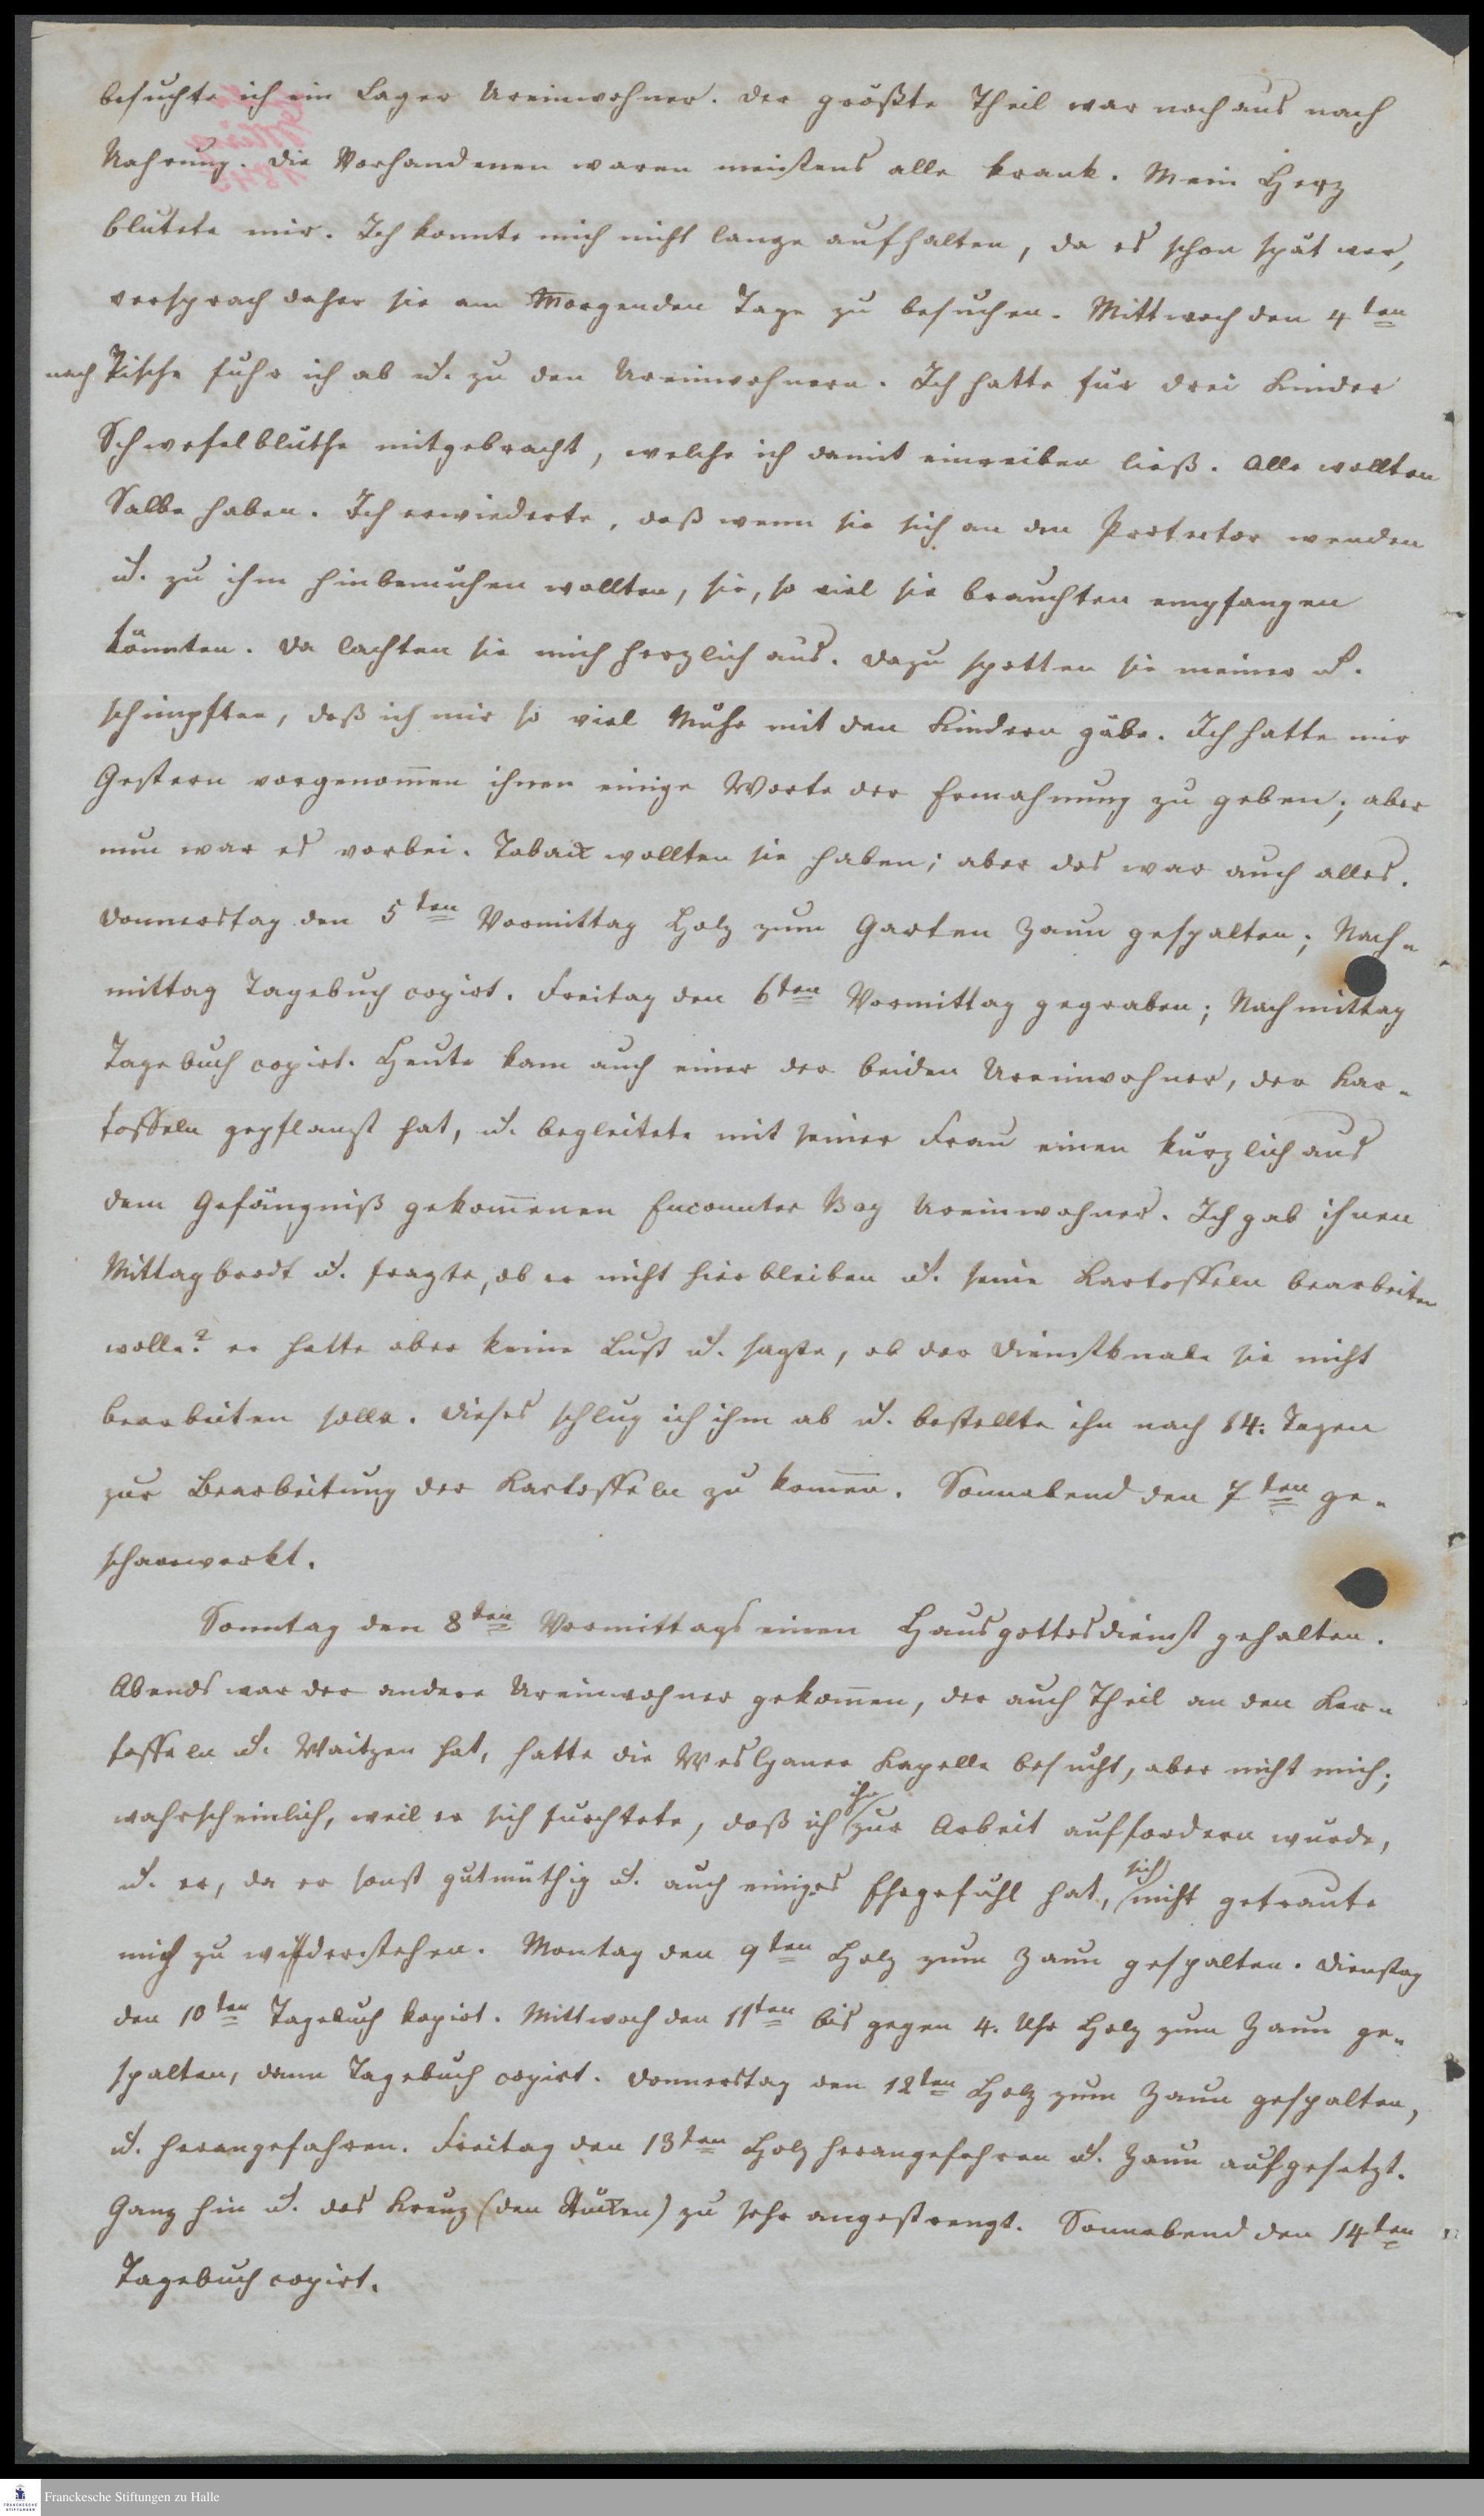 besuchte ich ein Lager Ureinwohner. Der größte Theil war noch aus nach
Nahrung. Die Vorhandenen waren meistens alle krank. Mein Herz
blutete mir. Ich konnte mich nicht lange aufhalten, da es schon spät war,
versprach daher sie am Morgenden Tage zu besuchen. Mittwoch den 4ten
nach Tische fuhr ich ab u. zu den Ureinwohnern. Ich hatte für drei Kinder
Schwefelblüthe mitgebracht, welche ich damit einreiben ließ. Alle wollten
Salbe haben. Ich erwiederte, daß wenn sie sich an den Protector wenden
u. zu ihm hinbemühen wollten, sie, so viel sie brauchten empfangen
könnten. Da lachten sie mich herzlich aus. Dazu spotten sie meiner u.
schimpften, daß ich mir so viel Mühe mit den Kindern gäbe. Ich hatte mir
Gestern vorgenom̄en ihnen einige Worte der Ermahnung zu geben; aber
nun war es vorbei. Toback wollten sie haben; aber das war auch alles.
Donnerstag den 5ten Vormittag Holz zum Garten Zaun gespalten; Nach-
mittag Tagebuch copirt. Freitag den 6ten Vormittag gegraben; Nachmittag
Tagebuch copirt. Heute kam auch einer der beiden Ureinwohner, der Kar-
toffeln gepflanzt hat, u. begleitete mit seiner Frau einen kürzlich aus
dem Gefängniß gekom̄enen Encounter Bay Ureinwohner. Ich gab ihnen
Mittagbrodt u. fragte, ob er nicht hierbleiben u. seine Kartoffeln bearbeiten
wolle? er hatte aber keine Lust u. sagte, ob der Dienstknabe sie nicht
bearbeiten solle. Dieses schlug ich ihm ab u. bestellte ihn nach 14. Tagen
zur Bearbeitung der Kartoffeln zu kom̄en. Sonnabend den 7ten ge-
scharwerkt.
Sonntag den 8ten Vormittags einen Hausgottesdienst gehalten.
Abends war der andere Ureinwohner gekom̄en, der auch Theil an den Kar-
toffeln u. Waitzen hat, hatte die Weslyaner Kapelle besucht, aber nicht mich;
wahrscheinlich, weil er sich fürchtete, daß ich ihn zur Arbeit auffordern würde,
u. er, da er sonst gutmüthig u. auch einiges Ehrgefühl hat, sich nicht getraute
mich zu widerstehen. Montag den 9ten Holz zum Zaun gespalten. Dienstag
den 10ten Tagebuch kopirt. Mittwoch den 11ten bis gegen 4. Uhr Holz zum Zaun ge-
spalten, dann Tagebuch copirt. Donnerstag den 12ten Holz zum Zaun gespalten,
u. herangefahren. Freitag den 13ten Holz herangefahren u. Zaun aufgesetzt.
Ganz hin u. das Kreuz (den Rücken) zu sehr angestrengt. Sonnabend den 14ten
Tagebuch copirt.
Franckesche Stiftungen zu Halle